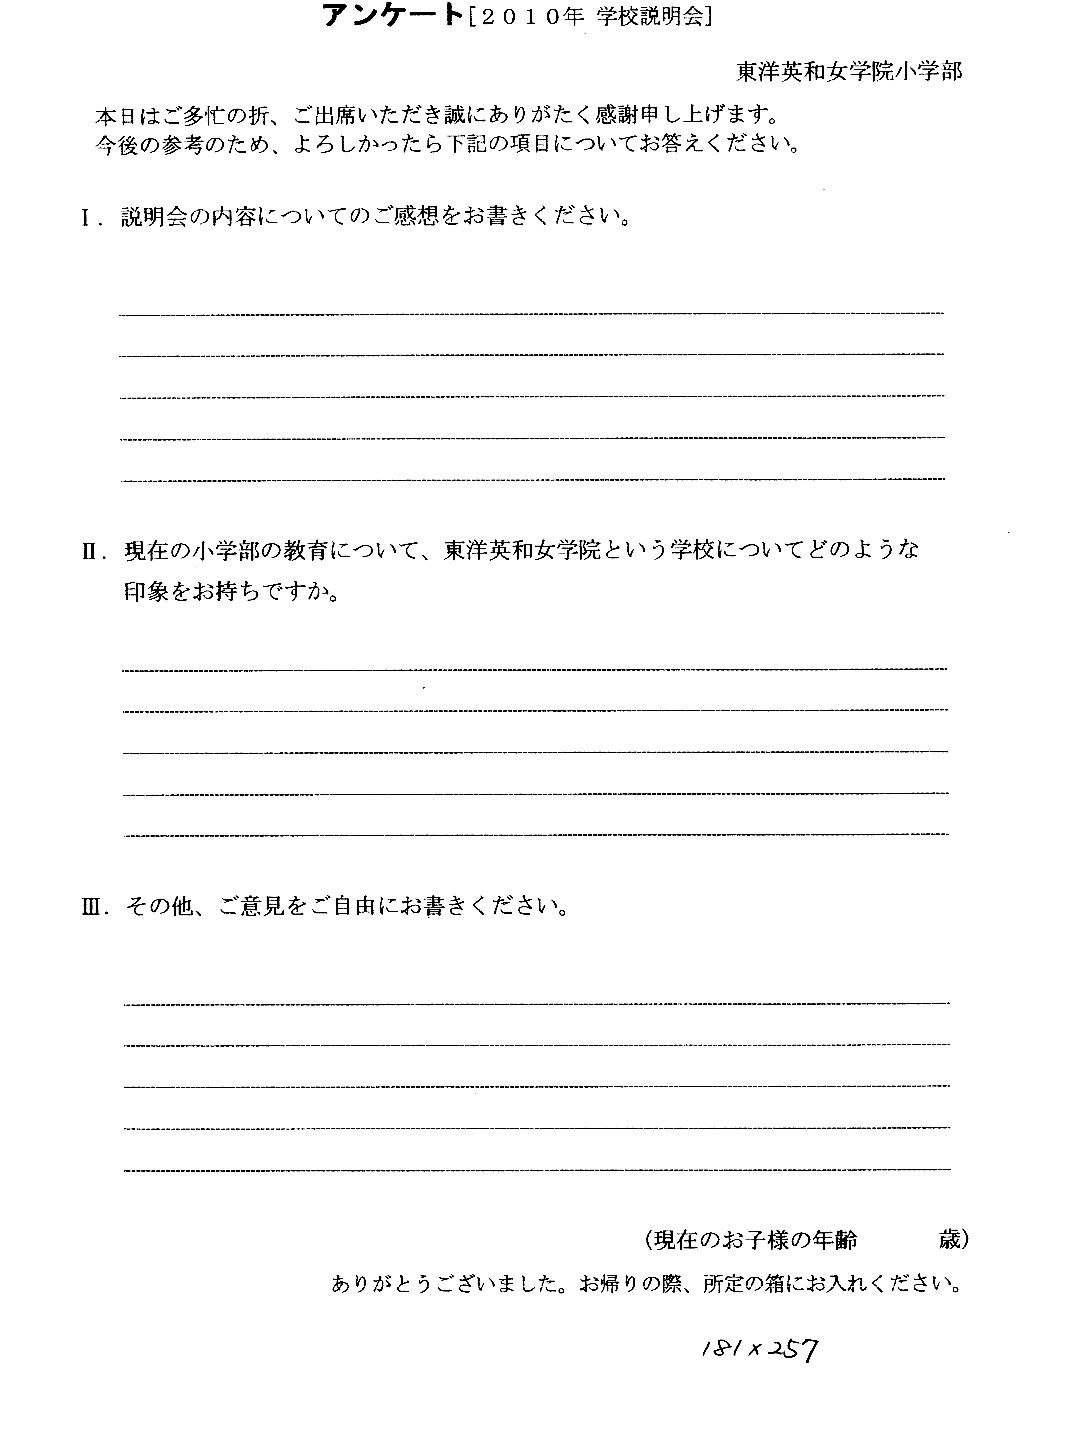 アンケート[２０１０年 学校説明会]
東洋英和女学院小学部
本日はご多忙の折、ご出席いただき誠にありがたく感謝申し上げます。
今後の参考のため、よろしかったら下記の項目についてお答えください。
Ⅰ．説明会の内容についてのご感想をお書きください。
Ⅱ．現在の小学部の教育について、東洋英和女学院という学校についてどのような
印象をお持ちですか。
Ⅲ．その他、ご意見をご自由にお書きください。
（現在のお子様の年齢　　　歳）
ありがとうございました。お帰りの際、所定の箱にお入れください。
181×257